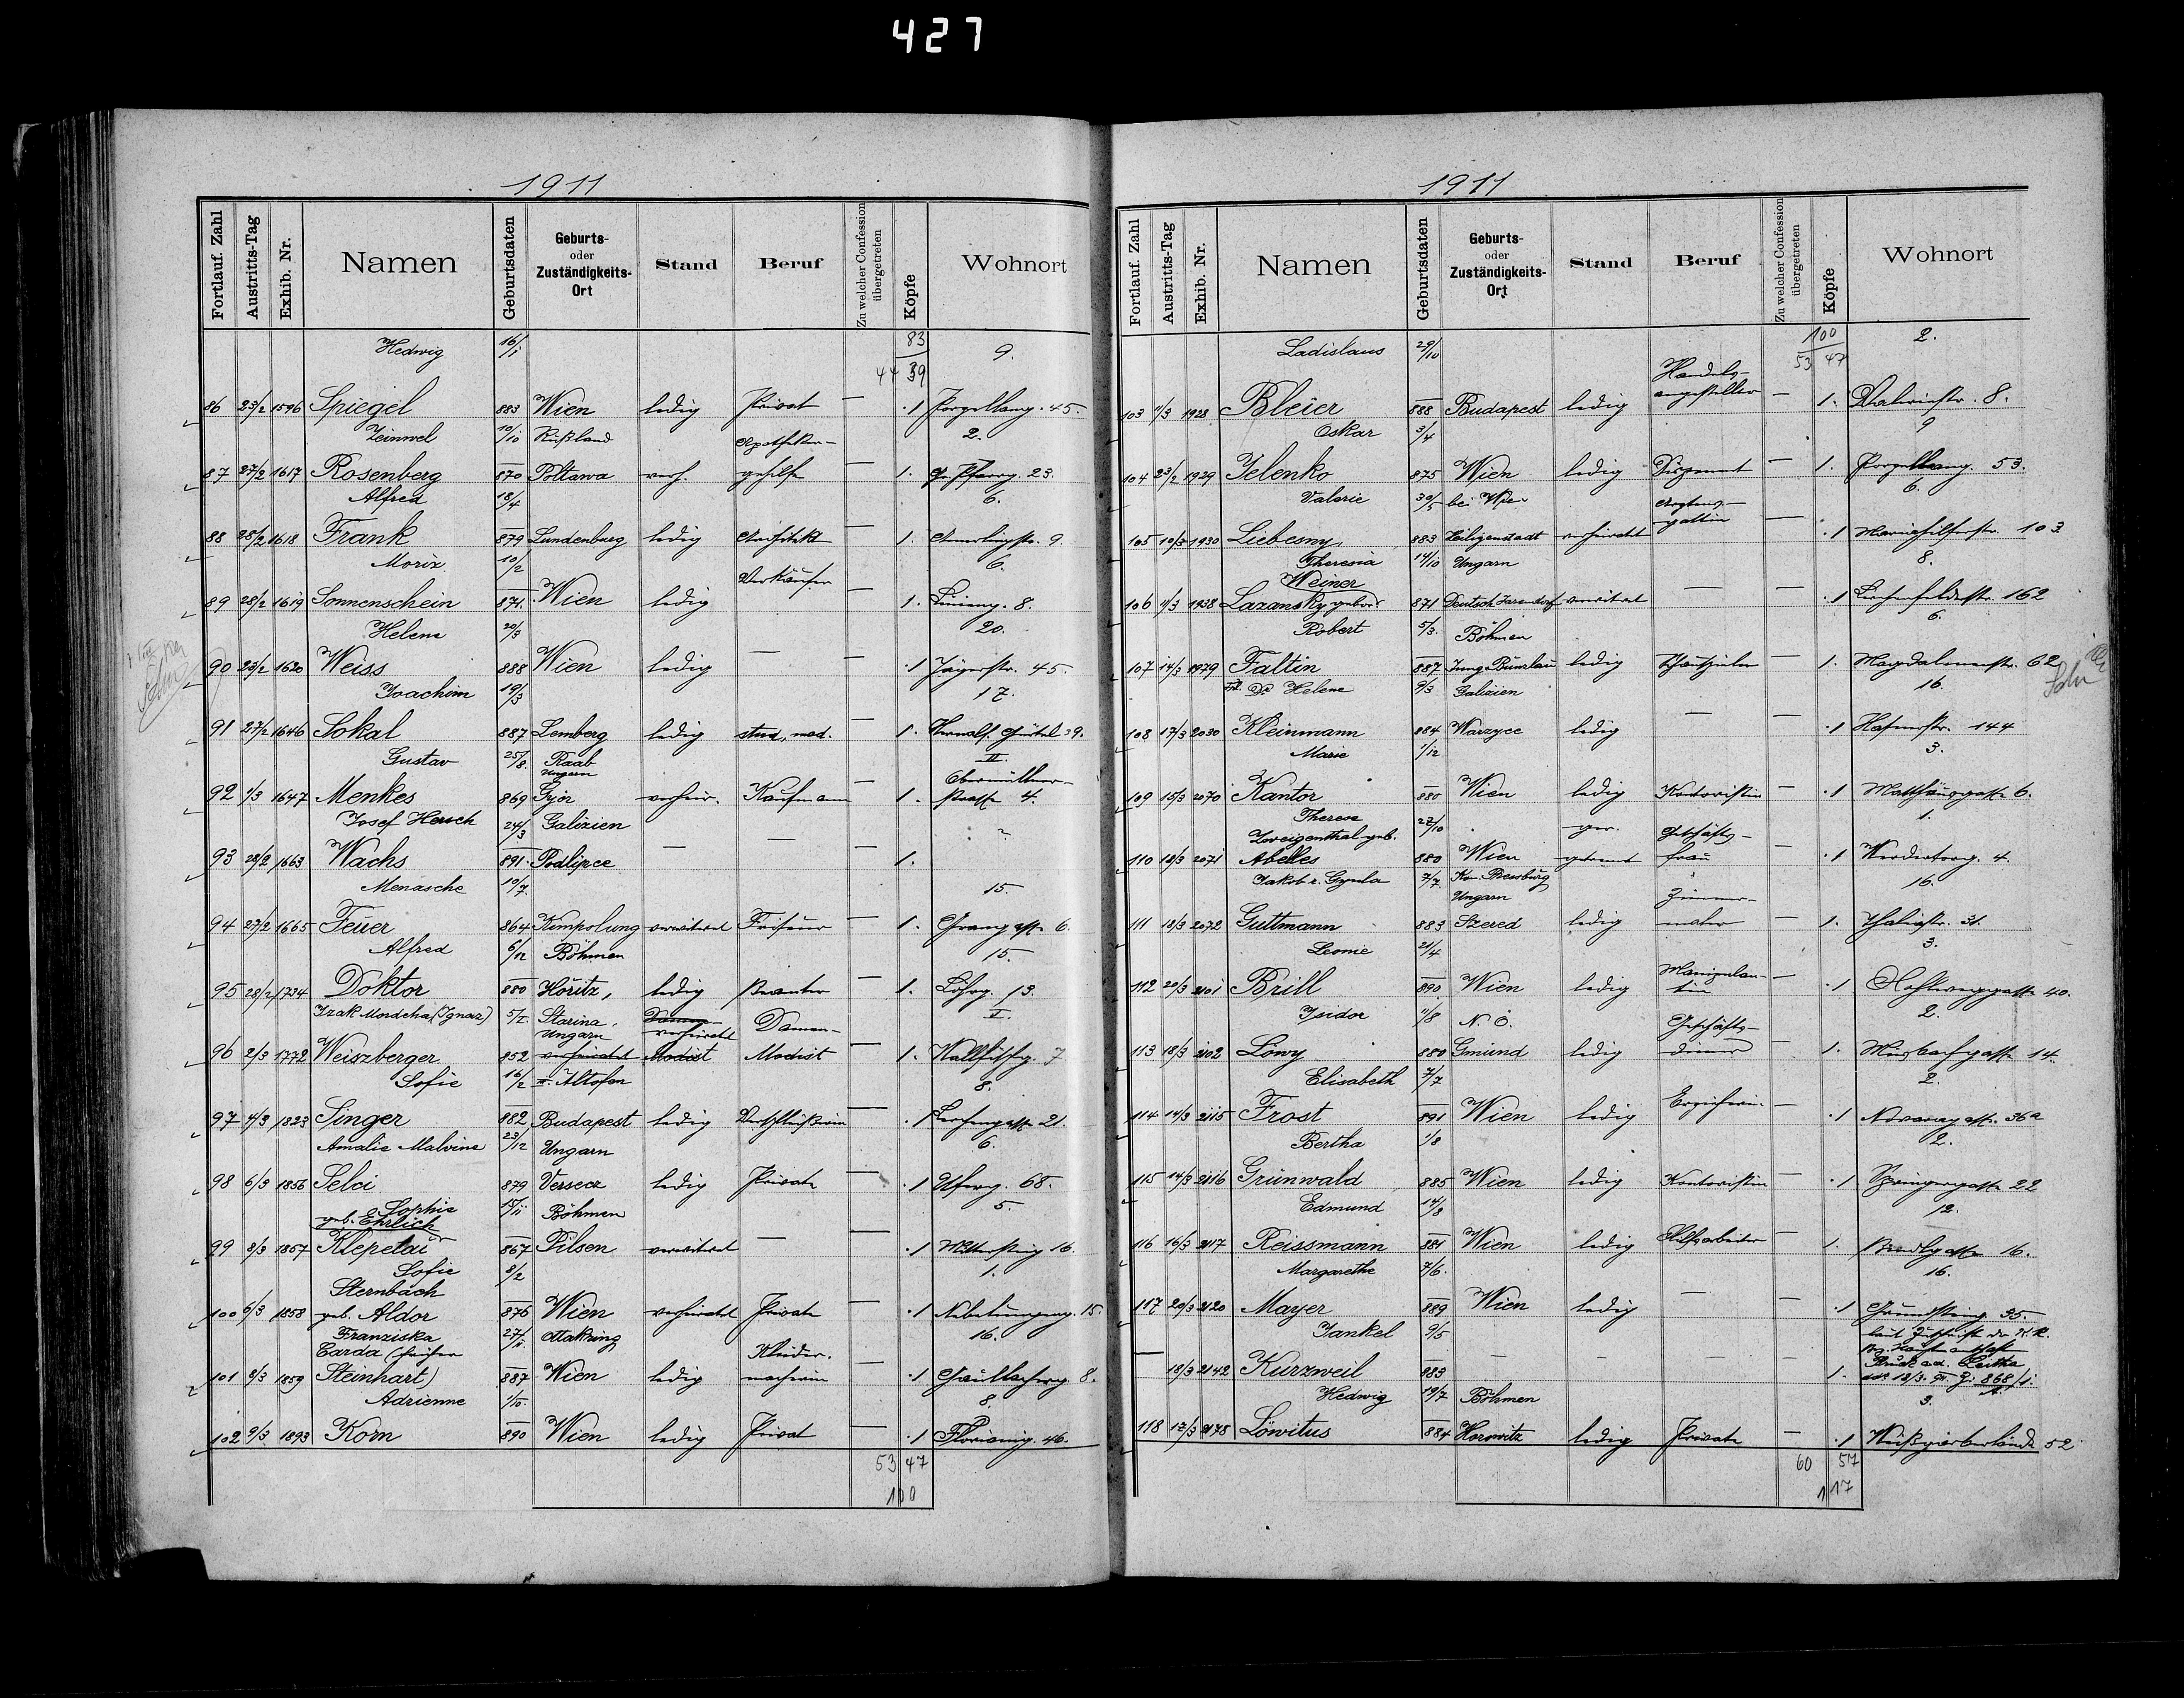 427
1911
Fortlauf. Zahl Austritts-Tag Exhib. Nr. Namen Geburtsdaten Geburts- oder Zuständigkeits-Ort Stand Beruf Zu welcher Confession übergetreten Köpfe Wohnort
Hedwig 16/1 83 9.
44 39
86 23/2 1596 Spiegel 883 Wien ledig Privat — 1 Porzellang. 45.
Zeinwel 10/10 Rußland Apotheker- 2.
87 27/2 1617 Rosenberg 870 Poltawa verh. gehilfe — 1. Gr. Pfarrg. 23.
Alfred 18/4 6.
88 28/2 1618 Frank 879 Lundenburg ledig Architekt — 1. Amerlingstr. 9
Moriz 10/2 6.
Verkäufer
89 28/2 1619 Sonnenschein 871. Wien ledig — 1. 8.
Helene 20/3 20.
90 23/2 1620 Weiss 888 Wien ledig — — 1 Jägerstr. 45.
Joachim 19/3 17.
91 27/2 1646 Sokal 887 Lemberg ledig stud. med. — 1. Hernals. Gürtel 39.
Gustav 25/8. Raab II.
Ungarn Obermüllner-
92 1/3 1647 Menkes 869 Györ verheir. Kaufmann — 1. strasse 4.
Josef Hersch 24/3 Galizien ?
93 28/2 1663 Wachs 891. Podlipce — — — 1.
Menasche 10/7. 15
94 27/2 1665 Feuer 864 Kimpolung verwitwet Friseur — 1. 6.
Alfred 6/12 Böhmen 15.
95 28/2 1734 Doktor 880 Horitz, ledig Beamter — 1. Löhrg. 13.
Izak Mordcha (Ignaz) 5/I. Starina, Damen- II.
Ungarn verheiratet Damen-
96 2/3 1772 Weiszberger 852 verheiratet Modist Modist 1. 7
Sofie 16/2 Altofen 8.
97 4/3 1823 Singer 882 Budapest ledig Verschleißerin — 1 Lerchengasse 21.
Amalie Malvine 23/12 Ungarn 6.
98 6/3 1856 Selci 879 Versecz ledig Private — 1 68.
Sophie Böhmen 5.
geb. Ehrlich
99 8/3 1857 Klepetař 867 Pilsen verwitwet — — 1 Mittersteig 16.
Sofie 8/2 1.
Sternbach
100 6/3 1858 geb. Aldor 876 Wien verheiratet Private — 1 Nibelungeng. 15.
Franziska 27/11 Ottakring 16.
Garda (früher Kleider-
101 8/3 1859 Steinhart) 887 Wien ledig macherin — 1 8.
Adrienne 1/10. 8.
102 9/3 1893 Korn 890 Wien ledig Privat — 1 Florianig. 46.
53 47
100
1911
Fortlauf. Zahl Austritts-Tag Exhib. Nr. Namen Geburtsdaten Geburts- oder Zuständigkeits-Ort Stand Beruf Zu welcher Confession übergetreten Köpfe Wohnort
Ladislaus 29/10 100 2.
Handels- 53 47
103 1/3 1928 Bleier 888 Budapest ledig angestellter — 1. 8.
Oskar 3/4 9
104 23/2 1929 Jelenko 875 Wien ledig Disponent — 1. Porzellang. 53.
Valerie 30/5 bei Wien Arztens- 6.
105 10/3 1930 Liebesny 883 Heiligenstadt verheiratet gattin — 1 Mariahilferstr. 103
Theresia 14/10 Ungarn 8.
Weiner
106 1/3 1938 Lazansky gebor. 871 Deutsch Jarendorf verwitwet — — 1 Lerchenfelderstr. 162
Robert 5/3. Böhmen 6.
107 14/3 1979 Faltin 887 Jung-Bunzlau ledig — 1. Magdalenenstr. 62
Frl. Dr. Helene 9/3 Galizien 16.
108 17/3 2030 Kleinmann 884 Warzyce ledig — — 1 144
Marie 1/12 3.
109 15/3 2070 Kantor 880 Wien ledig Kontoristin — 1 Matthäusgasse 6.
Therese 27/10 ger. Geschäfts- 1.
Zweigenthal geb.
110 18/3 2071 Abelles 880 Wien getrennt frau — 1 Werdertorg. 4.
Jakob r. Gyula 7/7. Kom. Pressburg 16.
Ungarn Zimmer-
111 18/3 2072 Guttmann 883 Szered ledig maler — 1. Thaliastr. 31.
Leonie 21/4 3.
Manipulan-
112 20/3 2101 Brill 890 Wien ledig tin — 1 Hohlweggasse 40.
Isidor 1/8 N. Ö. Geschäfts- 2.
113 18/3 2102 Löwy 880 Gmünd ledig diener — 1. Murbachgasse 14.
Elisabeth 7/7 2.
114 14/3 2115 Frost 891 Wien ledig Erzieherin — 1 Novaragasse 36a
Bertha 1/8 2.
115 14/3 2116 Grünwald 885 Wien ledig Kontoristin — 1 Springergasse 22
Edmund 14/8 12.
116 16/3 2117 Reissmann 881 Wien ledig Hilfsarbeiter — 1. 16.
Margarethe 7/6. 16.
117 20/3 2120 Mayer 889 Wien ledig — — 1 Grundsteing. 35
Jankel 9/5 laut Zuschrift der K. K.
Bez. Hauptmannschaft
— 18/3 2142 Kurzweil 883 — — — — Bruck a. d. Leitha
1. 18/3. 868/1
Hedwig 19/7 Böhmen 3.
118 17/3 2178 Löwitus 884 Horowitz ledig Private — 1 Weißgärberlände 52
60 57
117